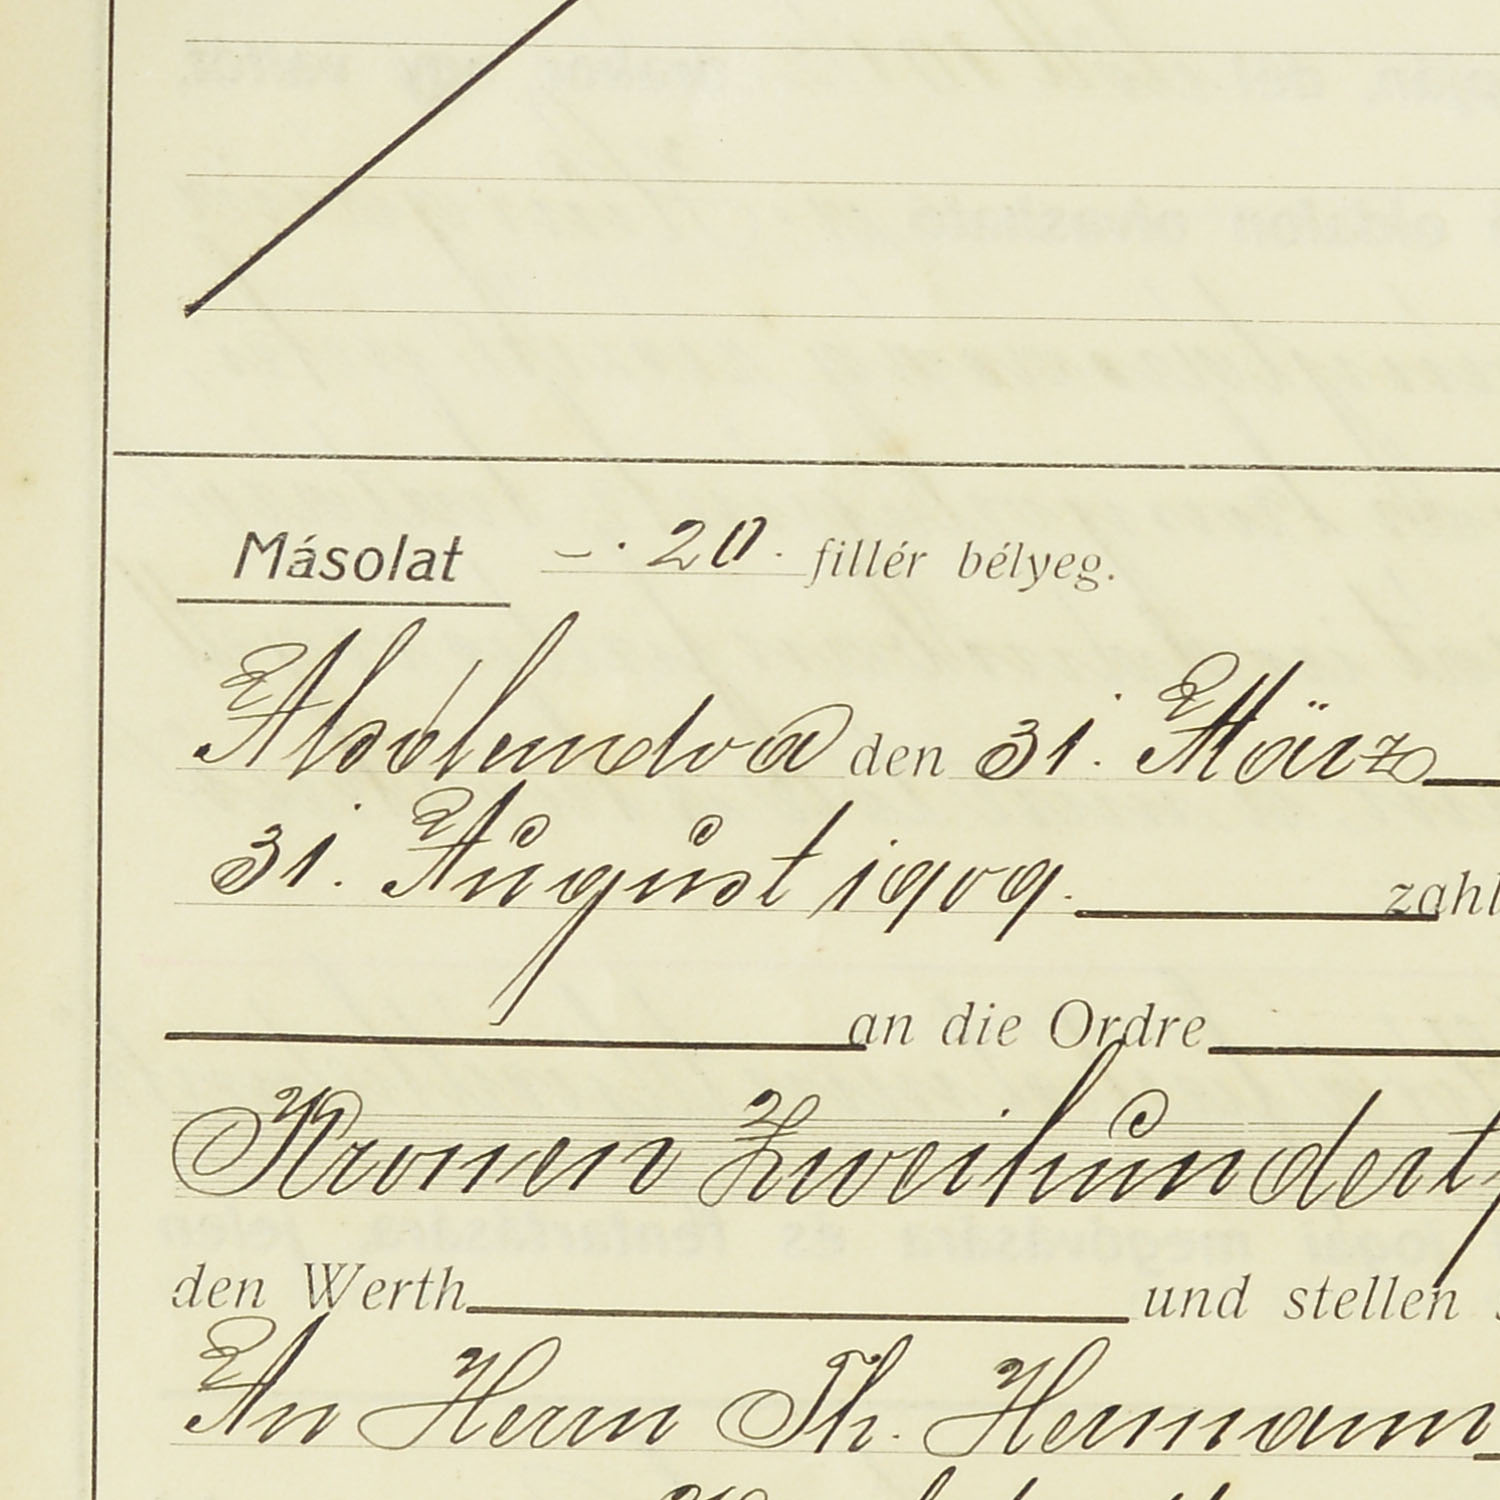 Másolat –· 20. fillér bélyeg.
Alsólendva den 31. März
31. August 1909. zahl
an die Ordre
Kronen Zweihundert
den Werth und stellen
An Herrn Th. Hermann